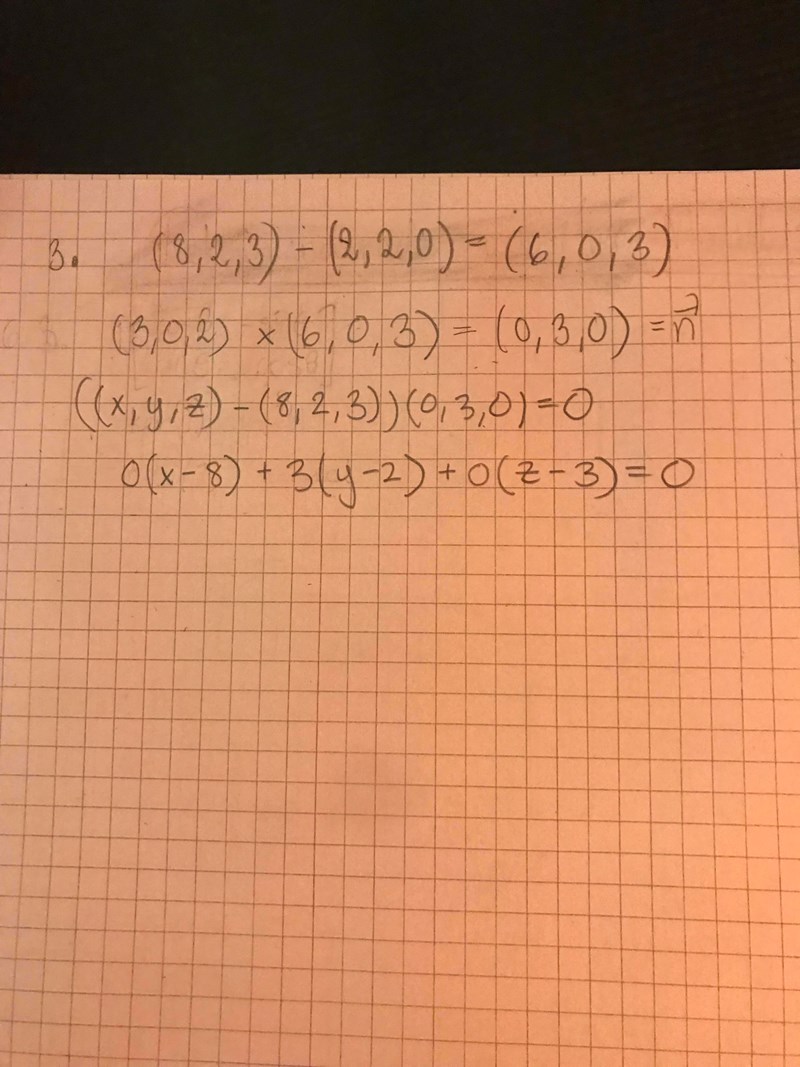 3. (8,2,3) - (2,2,0) = (6,0,3)
(3,0,2) × (6,0,3) = (0,3,0) = n⃗
((x,y,z) - (8,2,3))(0,3,0) = 0
0(x-8) + 3(y-2) + 0(z-3) = 0